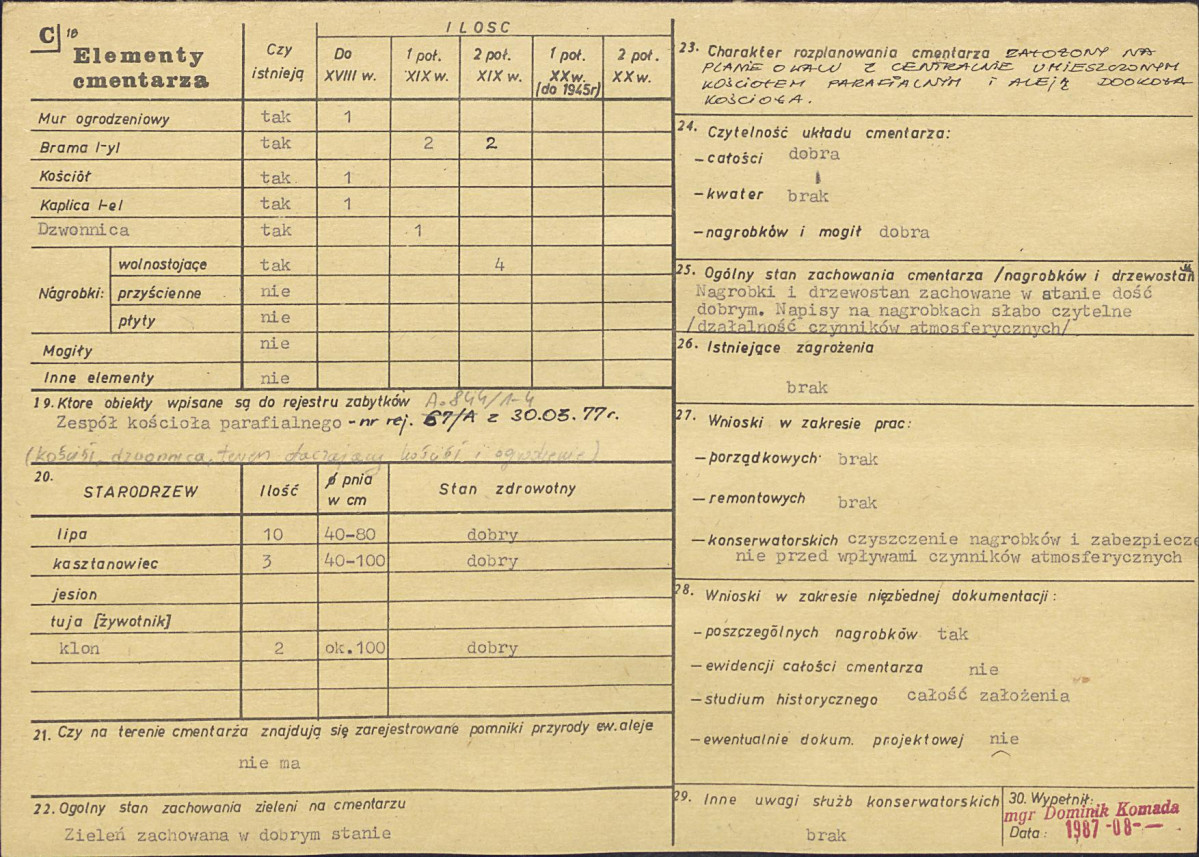 C 18
Elementy cmentarza
Czy istnieją
ILOSC
Do XVIII w.
1 poł. XIX w.
2 poł. XIX w.
1 poł. XX w. (do 1945r)
2 poł. XX w.
Mur ogrodzeniowy tak 1
Brama l-yl tak 2 2
Kościół tak 1
Kaplica l-el tak 1
Dzwonnica tak 1
Nagrobki: wolnostojące tak 4
przyścienne nie
płyty nie
Mogiły nie
Inne elementy nie
19. Ktore obiekty wpisane są do rejestru zabytków A-844/1-4
Zespół kościoła parafialnego - nr rej. 67/A z 30.05.77r.
(kościół, dzwonnica, teren otaczający kościół i ogrodzenie)
20.
STARODRZEW Ilość ø pnia w cm Stan zdrowotny
lipa 10 40-80 dobry
kasztanowiec 3 40-100 dobry
jesion
tuja [żywotnik]
klon 2 ok.100 dobry
21. Czy na terenie cmentarza znajdują się zarejestrowane pomniki przyrody ew. aleje
nie ma
22. Ogolny stan zachowania zieleni na cmentarzu
Zieleń zachowana w dobrym stanie
23. Charakter rozplanowania cmentarza ZAŁOŻONY NA
PLANIE OWALU Z CENTRALNIE UMIESZCZONYM
KOŚCIOŁEM PARAFIALNYM I ALEJĄ DOOKOŁA
KOŚCIOŁA.
24. Czytelność układu cmentarza:
- całości dobra
- kwater brak
- nagrobków i mogił dobra
25. Ogólny stan zachowania cmentarza /nagrobków i drzewostan
Nagrobki i drzewostan zachowane w stanie dość
dobrym. Napisy na nagrobkach słabo czytelne
/działalność czynników atmosferycznych/
26. Istniejące zagrożenia
brak
27. Wnioski w zakresie prac:
- porządkowych brak
- remontowych brak
- konserwatorskich czyszczenie nagrobków i zabezpiecze
nie przed wpływami czynników atmosferycznych
28. Wnioski w zakresie niezbednej dokumentacji:
- poszczególnych nagrobków tak
- ewidencji całości cmentarza nie
- studium historycznego całość założenia
- ewentualnie dokum. projektowej nie
29. Inne uwagi służb konserwatorskich
brak
30. Wypełnił:
mgr Dominik Komada
Data: 1987-08-—